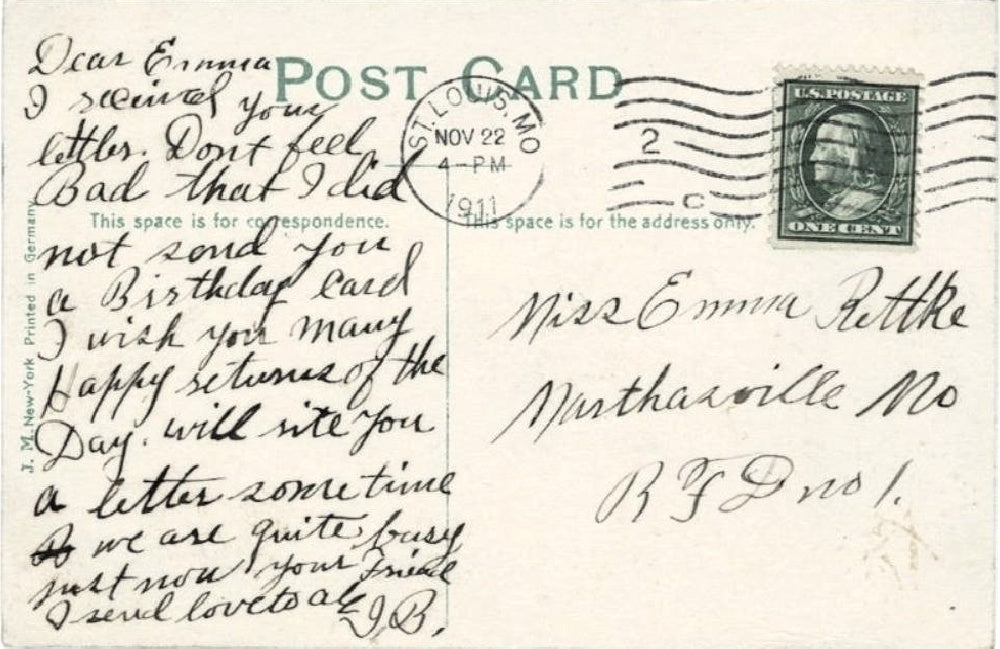 POST CARD
Dear Emma
I received your
letter. Dont feel
Bad that I did
not send you
a Birthday Card
I wish you many
Happy returns of the
Day. will rite you
a letter sometime
we are quite busy
just now your Friend
I send love to all
J. B.
This space is for correspondence.
This space is for the address only.
J. M. New-York Printed in Germany
ST. LOUIS, MO
NOV 22
4-PM
1911
2
C
U.S. POSTAGE
ONE CENT
Miss Emma Rettke
Marthasville Mo
R F D no 1.